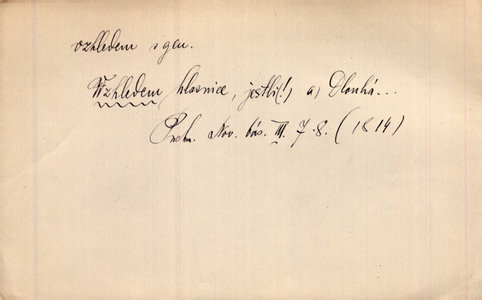 vzhledem s gen.
Vzhledem hlasnice, jestli(!) a) Dlouhá...
Puchm. Nov. bás. III. 7.8. (1814)